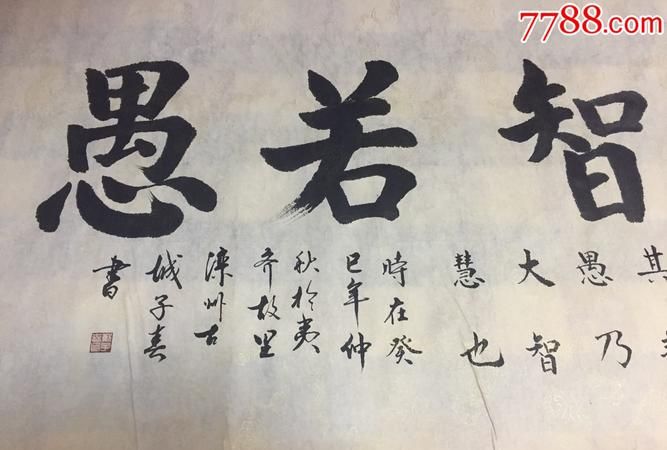 7788.com
智若愚
其
愚乃
大智
慧也
時在癸
巳年仲
秋於夷
齐故里
滦州古
城子春
書